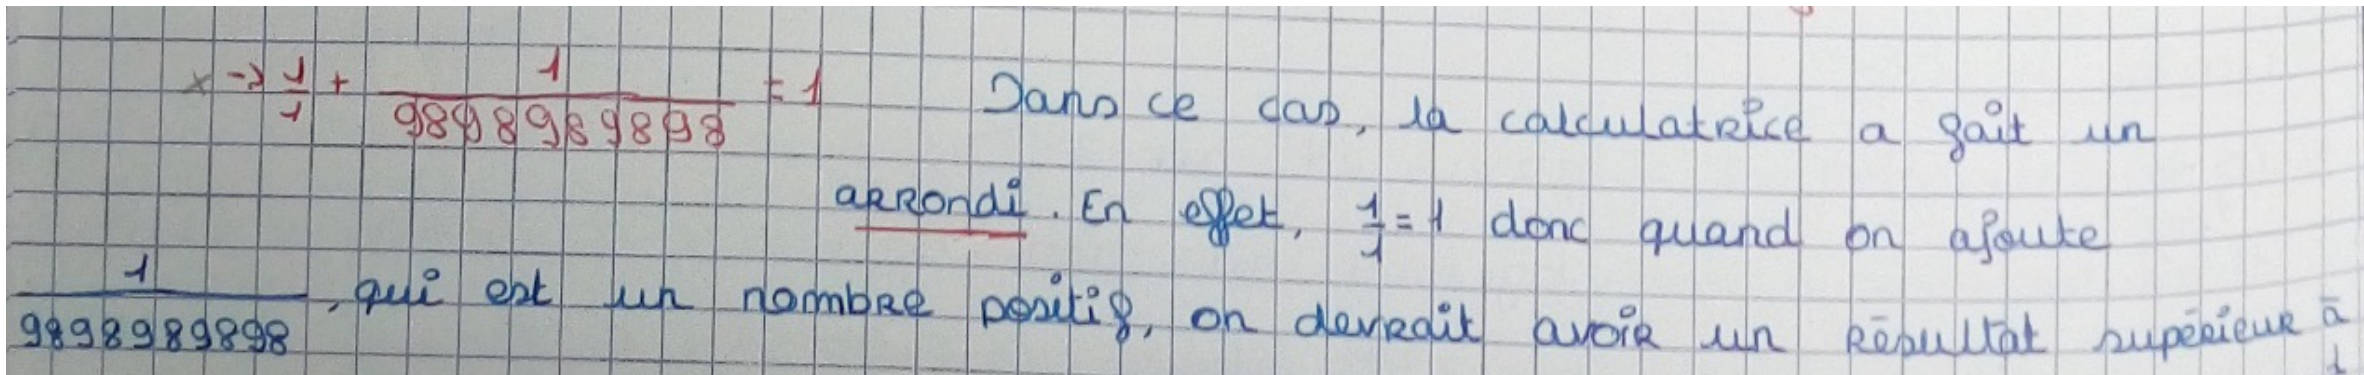 x → 1/1 + 1/9898989898 = 1 Dans ce cas, la calculatrice a fait un
arrondi. En effet, 1/1 = 1 donc quand on ajoute
1/9898989898, qui est un nombre positif, on devrait avoir un résultat supérieur à
1